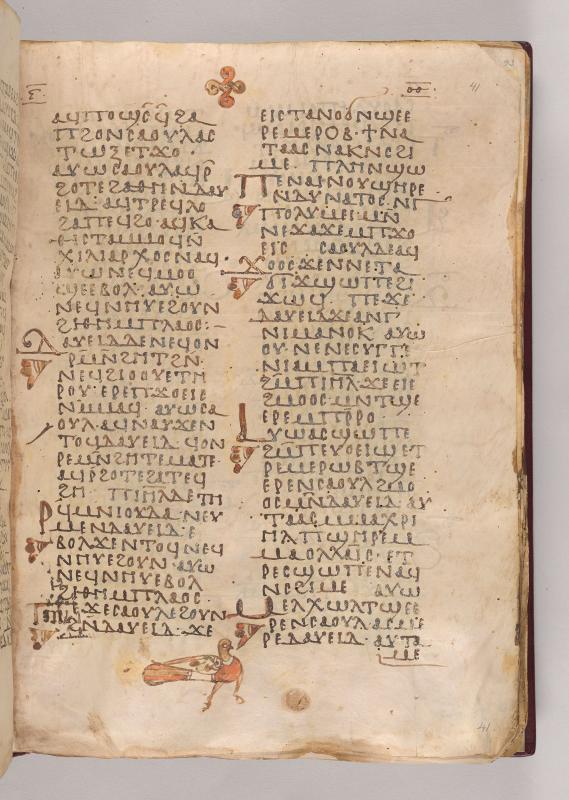 ⲉ̅ ⲟⲑ
ⲁϥⲡⲱϣⲥ̄ ϥ̄ϩⲁ
ⲡϩⲟⲛⲥⲁⲟⲩⲗⲁⲥ
ⲧⲱϩⲉⲧϫⲟ·
ⲁⲩⲱⲥⲁⲟⲩⲗⲁϥⲣ̄
ϩⲟⲧⲉϩⲁⲑⲏⲛⲇⲁⲩ
ⲉⲓⲇ·ⲁϥⲧⲣⲉϥⲗⲟ
ϩⲁⲡⲉϥϩⲟ·ⲁϥⲕⲁ
ⲑⲓⲥⲧⲁⲙⲙⲟϥⲛ̄
ⲭⲓⲗⲓⲁⲣⲭⲟⲥⲛⲁϥ·
ⲁⲩⲱⲛⲉϥⲙⲟⲟ
ϣⲉⲉⲃⲟⲗ·ⲁⲩⲱ
ⲛⲉϥⲛⲏⲩⲉϩⲟⲩⲛ
ϩⲓⲑⲏⲙⲡⲗⲁⲟⲥ:–
ⲇⲁⲩⲉⲓⲇⲇⲉⲛⲉϥⲟⲛ
ⲣⲙⲛϩⲏⲧϩⲛ·
ⲛⲉϥϩⲓⲟⲟⲩⲉⲧⲏ
ⲣⲟⲩ·ⲉⲣⲉⲡϫⲟⲉⲓⲥ
ⲛⲙⲙⲁϥ·ⲁⲩⲱⲥⲁ
ⲟⲩⲗ·ⲁϥⲛⲁⲩϫⲉⲛ
ⲧⲟϥⲇⲁⲩⲉⲓⲇ·ϥⲟⲛ
ⲣⲉⲙⲛϩⲏⲧⲉⲙⲁⲧⲉ·
ⲁϥⲣϩⲟⲧⲉϩⲁⲧⲉϥ
ϩⲏ· ⲡⲓⲏⲗⲇⲉⲧⲏ
ⲣϥⲙⲛⲓⲟⲩⲇⲁ·ⲛⲉⲩ
ⲙⲉⲛⲇⲁⲩⲉⲓⲇ·ⲉ
ⲃⲟⲗϫⲉⲛⲧⲟϥⲛⲉϥ
ⲛⲏⲩⲉϩⲟⲩⲛ·ⲁⲩⲱ
ⲛⲉϥⲛⲏⲩⲉⲃⲟⲗ
ϩⲓⲑⲏⲙⲡⲗⲁⲟⲥ·
ⲡⲉϫⲉⲥⲁⲟⲩⲗⲉϩⲟⲩⲛ
ⲛⲇⲁⲩⲉⲓⲇ·ϫⲉ
ⲉⲓⲥⲧⲁⲛⲟϭⲛϣⲉⲉ
ⲣⲉⲙⲉⲣⲟⲃ·ϯⲛⲁ
ⲧⲁⲁⲥⲛⲁⲕⲛⲥϩⲓ
ⲙⲉ· ⲡⲗⲏⲛϣⲱ
ⲡⲉⲛⲁⲓⲛⲟⲩϣⲏⲣⲉ
ⲛⲇⲩⲛⲁⲧⲟⲥ·ⲛⲅ̄
ⲡⲟⲗⲩⲙⲉⲓ·ⲙⲛ̄
ⲛⲉϫⲁϫⲉⲙⲡϫⲟ
ⲉⲓⲥ· ⲥⲁⲟⲩⲗⲇⲉⲁϥ
ϫⲟⲟⲥϫⲉⲛⲛⲉⲧⲁ
ϭⲓϫϣⲱⲡⲉϩⲓ
ϫⲱϥ· ⲡⲉϫⲉ
ⲇⲁⲩⲉⲓⲇϫⲉⲁⲛⲅ̄
ⲛⲓⲙⲁⲛⲟⲕ ⲁⲩⲱ
ⲟⲩ·ⲛⲉⲛⲉⲥⲩⲅⲅⲉ
ⲛⲓⲁⲙⲡⲁⲉⲓⲱⲧ
ϩⲙⲡⲓⲏⲗ·ϫⲉⲉⲓⲉ
ϩⲙⲟⲟⲥ·ⲙⲛⲧϣⲉ
ⲉⲣⲉⲙⲡⲣ̄ⲣⲟ·
ⲁⲩⲱⲁⲥϣⲱⲡⲉ
ϩⲙⲡⲉⲩⲟⲉⲓϣⲉⲧ
ⲣⲉⲙⲉⲣⲱⲃⲧϣⲉ
ⲉⲣⲉⲛⲥⲁⲟⲩⲗϩⲙⲟ
ⲟⲥⲙⲛ̄ⲇⲁⲩⲉⲓⲇ·ⲁⲩ
ⲧⲁⲁⲥⲙⲙⲁⲭⲣⲓ
ⲏⲗⲡϣⲏⲣⲉⲙⲁ
ⲙⲁⲟⲗⲭⲁⲓⲥ·ⲉⲧ
ⲣⲉⲥϣⲱⲡⲉⲛⲁϥ
ⲛⲥϩⲓⲙⲉ ⲁⲩⲱ
ⲙⲉⲗⲭⲱⲗⲧϣⲉⲉ
ⲣⲉⲛⲥⲁⲟⲩⲗⲁⲥⲙⲉ
ⲣⲉⲇⲁⲩⲉⲓⲇ·ⲁⲩⲧⲁ
ⲙⲉ
41
41